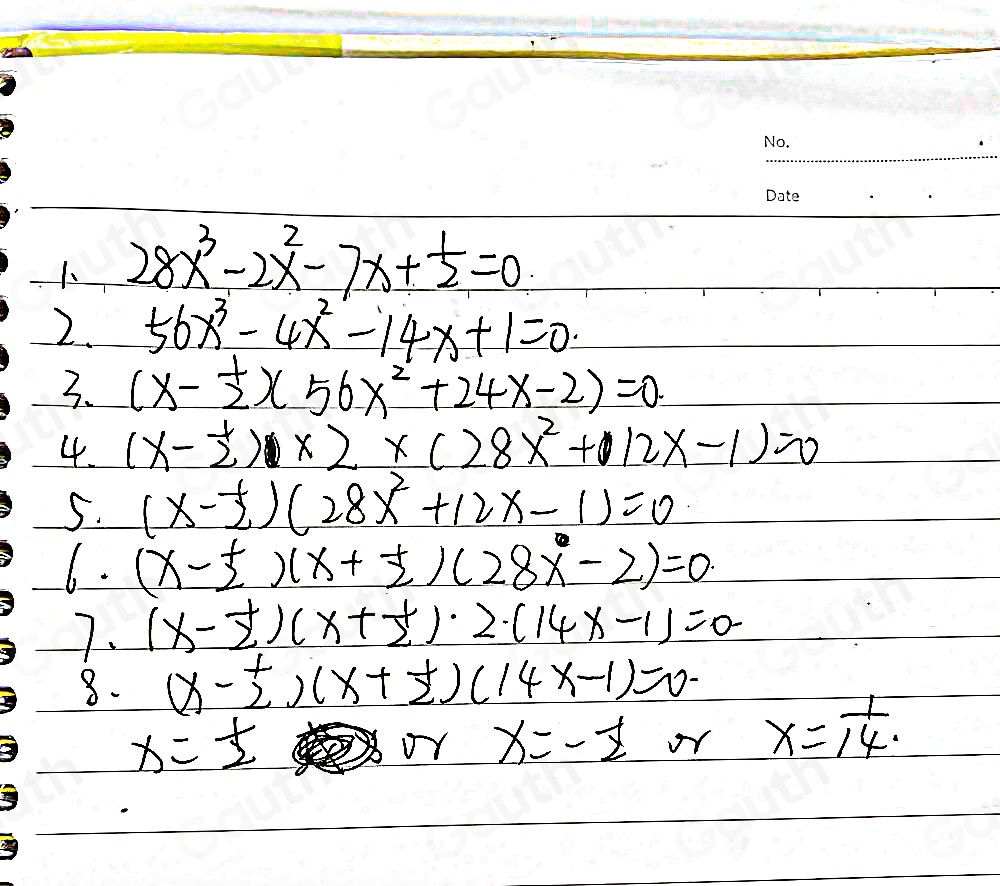 No.
Date
1. 28x³-2x²-7x+½=0.
2. 56x³-4x²-14x+1=0.
3. (x-½)(56x²+24x-2)=0.
4. (x-½)×2×(28x²+12x-1)=0
5. (x-½)(28x²+12x-1)=0
6. (x-½)(x+½)(28x-2)=0.
7. (x-½)(x+½)·2·(14x-1)=0
8. (x-½)(x+½)(14x-1)=0.
x=½ or x=-½ or x=1/14.